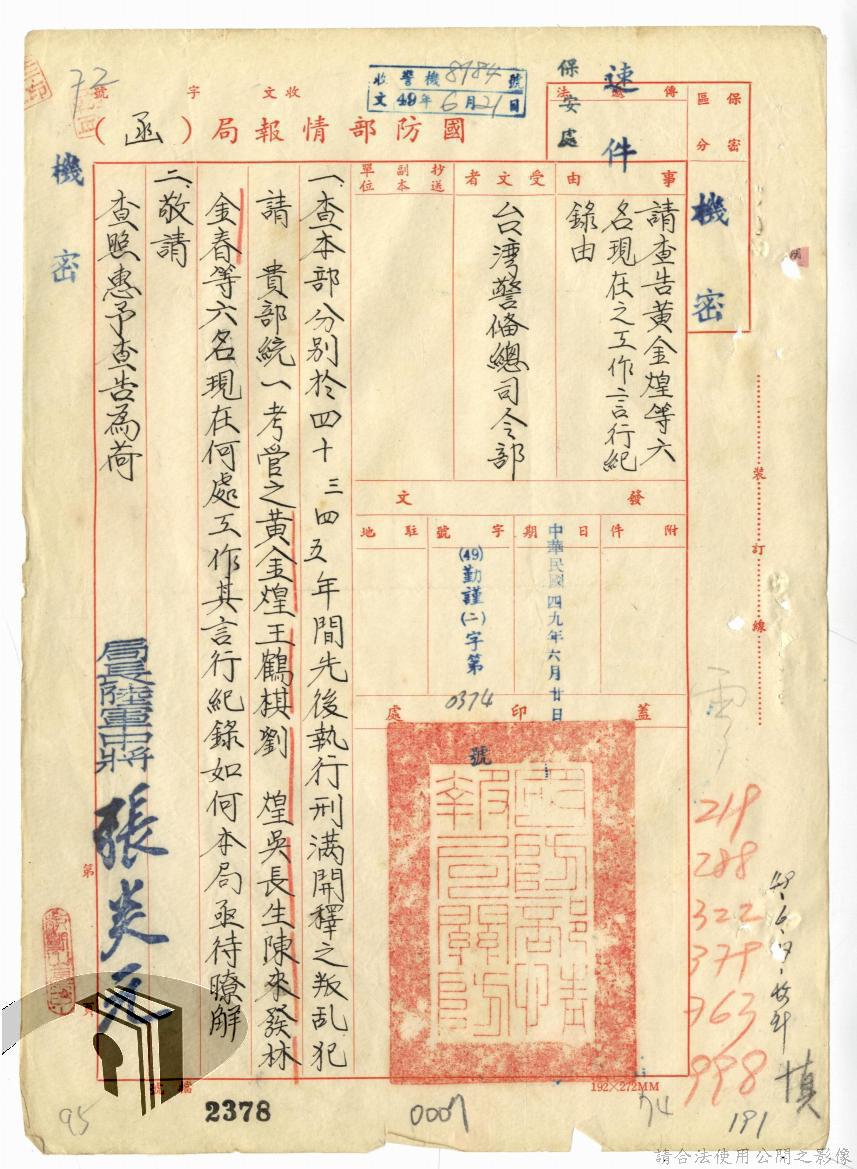 收文 警機8984號
49年6月21日
收文 字 號
72
國防部情報局（函）
保安處
速件
傳遞法
保密區分
機密
機密
事由
請查告黃金煌等六
名現在之工作言行紀
錄由
受文者
台灣警備總司令部
抄送副本單位
發文
附件
日期
中華民國四九年六月廿日
字號
(49)勤謹(二)字第
0374
號
駐地
蓋印處
國防部情報局關防
一、查本部分別於四十三四五年間先後執行刑滿開釋之叛乱犯
請 貴部統一考管之黃金煌王鶴棋劉 煌吳長生陳來發林
金春等六名現在何處工作其言行紀錄如何本局亟待瞭解
二、敬請
查照惠予查告為荷
局長陸軍中將 張炎元
裝訂線
219
288
322
379
763
998
慎
第
頁
檔號
192×272MM
95
2378
0007
74
191
請合法使用公開之影像